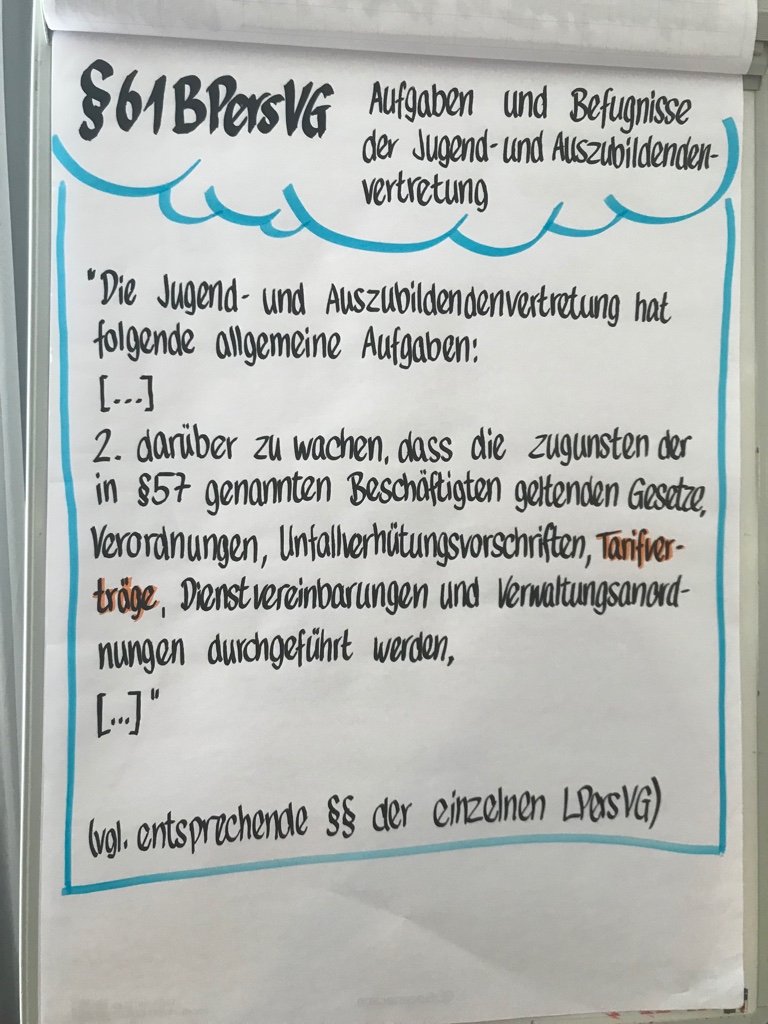 §61 BPersVG
Aufgaben und Befugnisse
der Jugend- und Auszubildenden-
vertretung
"Die Jugend- und Auszubildendenvertretung hat
folgende allgemeine Aufgaben:
[...]
2. darüber zu wachen, dass die zugunsten der
in §57 genannten Beschäftigten geltenden Gesetze,
Verordnungen, Unfallverhütungsvorschriften, Tarifver-
träge, Dienstvereinbarungen und Verwaltungsanord-
nungen durchgeführt werden,
[...]"
(vgl. entsprechende §§ der einzelnen LPersVG)